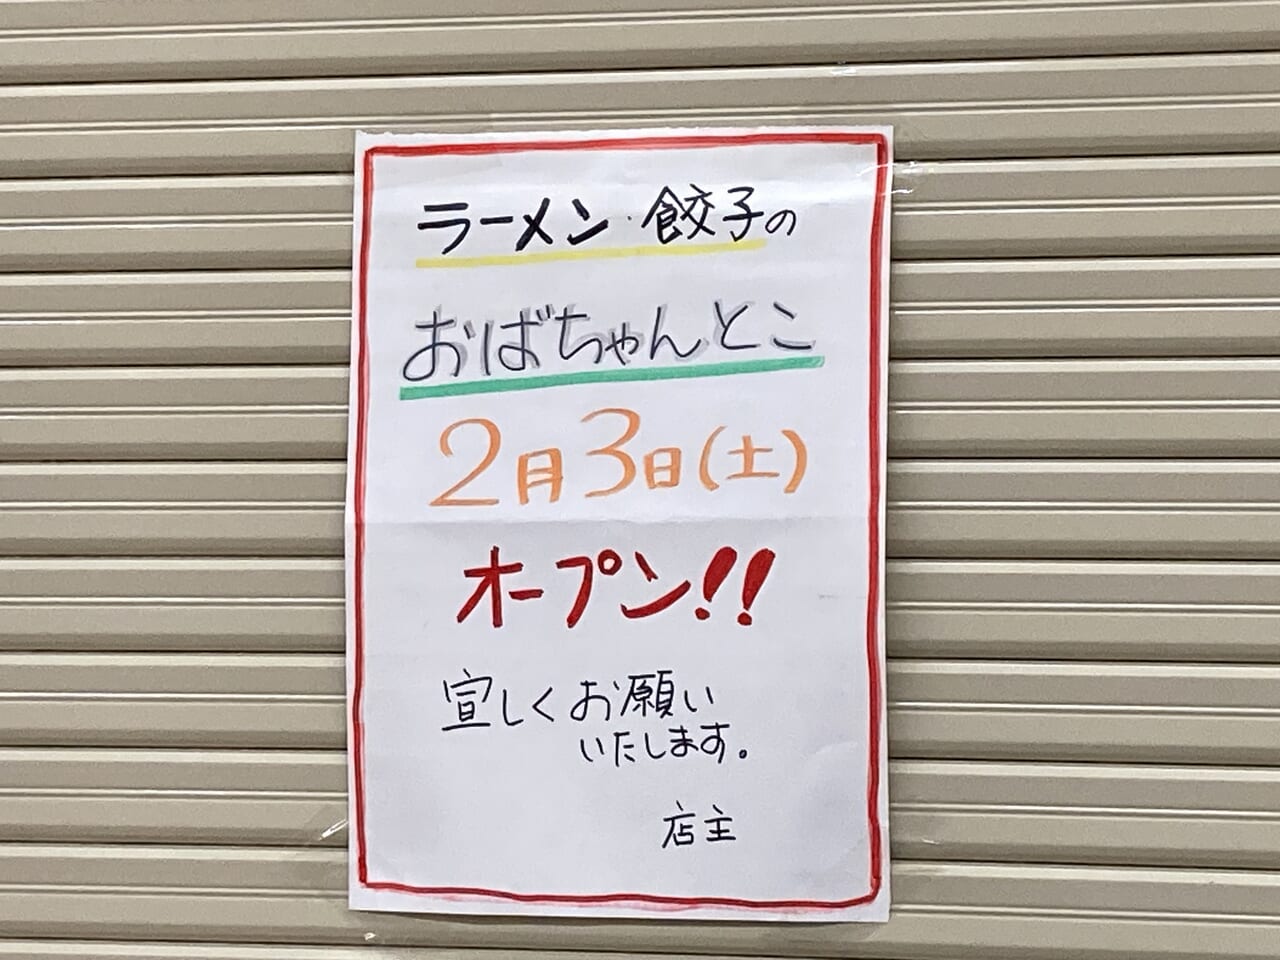 ラーメン・餃子の
おばちゃんとこ
2月3日(土)
オープン!!
宜しくお願い
いたします。
店主